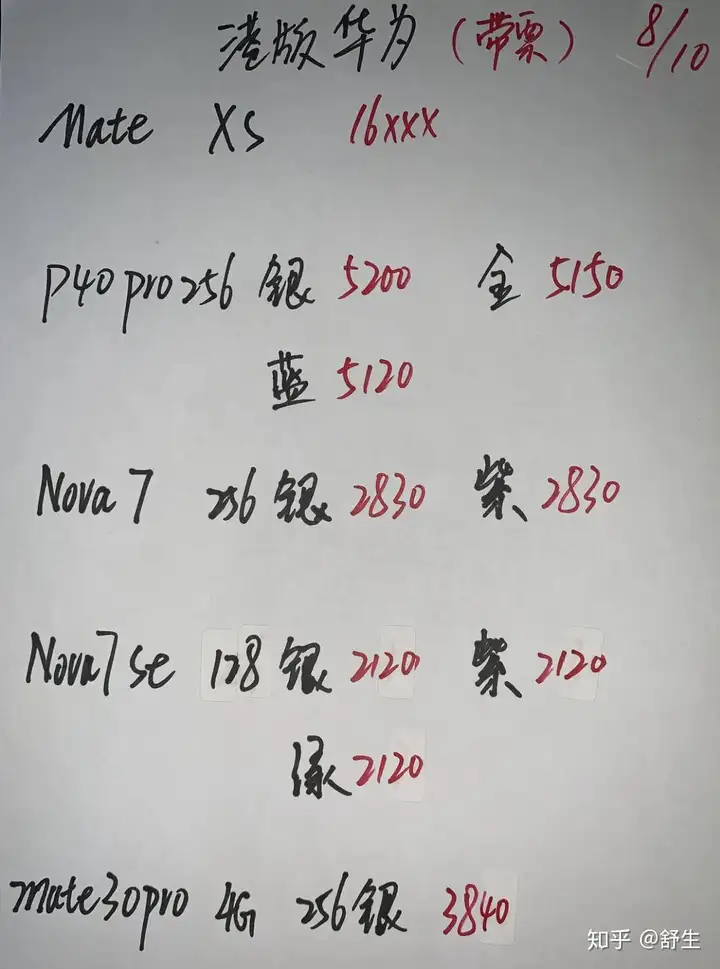 港版华为（带票） 8/10
Mate XS 16xxx
P40pro256 银 5200 金 5150
蓝 5120
Nova 7 256 银 2830 紫 2830
Nova7 se 128 银 2120 紫 2120
绿 2120
mate30pro 4G 256 银 3840
知乎 @舒生